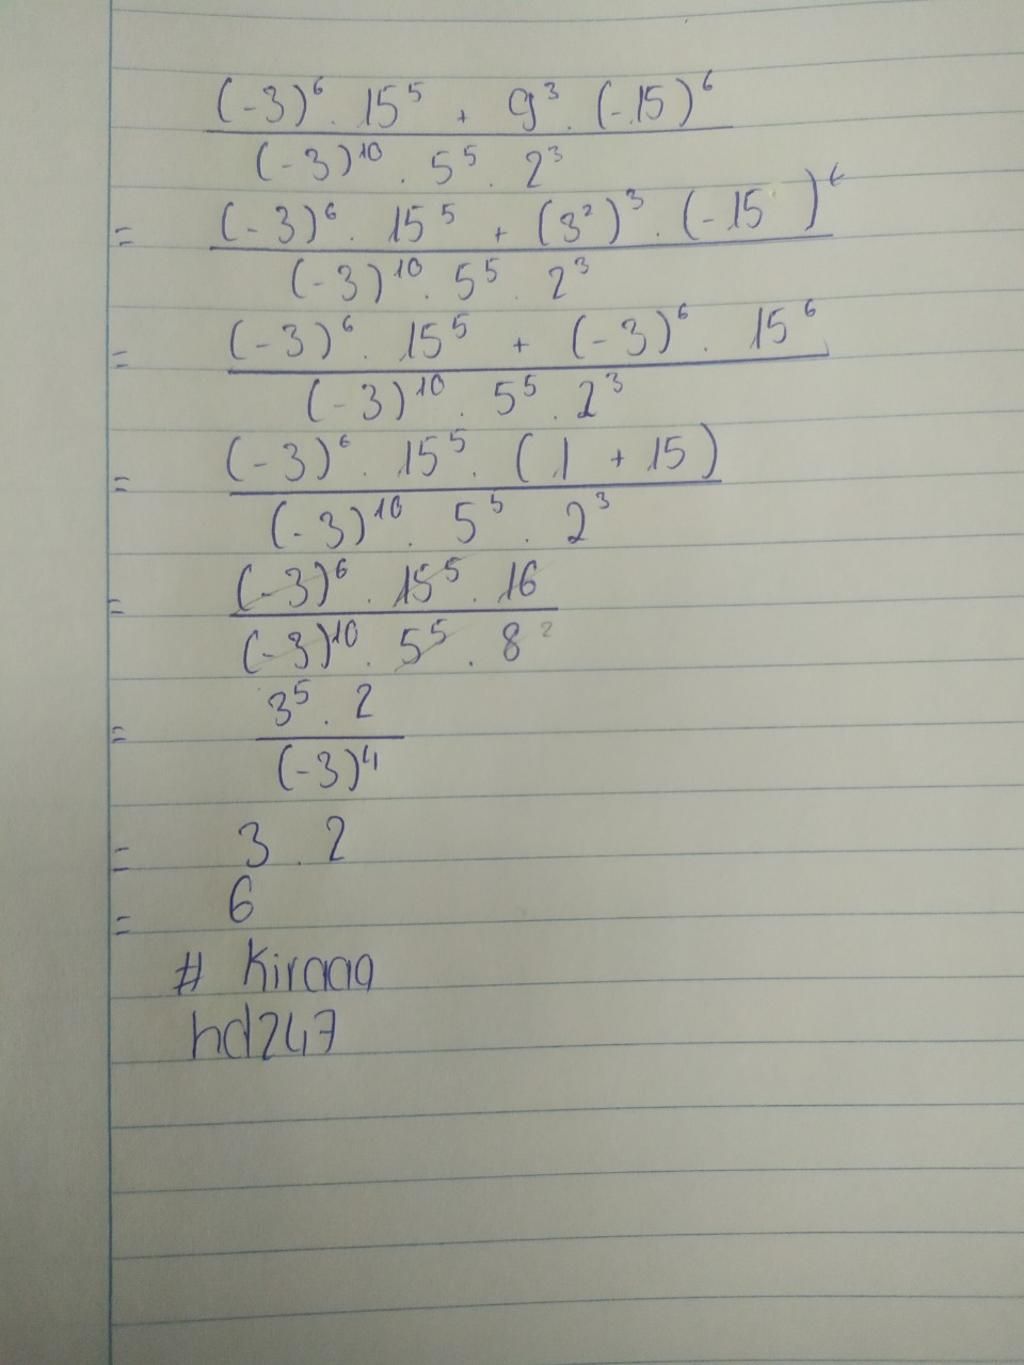 (-3)⁶ . 15⁵ + 9³ . (-15)⁶
(-3)¹⁰ . 5⁵ . 2³
= (-3)⁶ . 15⁵ + (3²)³ . (-15)⁶
(-3)¹⁰ . 5⁵ . 2³
= (-3)⁶ . 15⁵ + (-3)⁶ . 15⁶
(-3)¹⁰ . 5⁵ . 2³
= (-3)⁶ . 15⁵ . (1 + 15)
(-3)¹⁰ . 5⁵ . 2³
= (-3)⁶ . 15⁵ . 16
(-3)¹⁰ . 5⁵ . 8 ²
= 3⁵ . 2
(-3)⁴
= 3 . 2
= 6
# Kiraaa
hd247